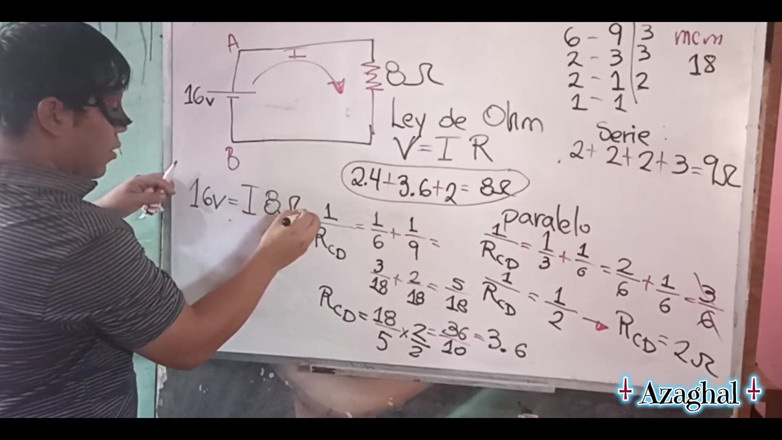 A
I
8Ω
16v
B
6 - 9 | 3
2 - 3 | 3
2 - 1 | 2
1 - 1
mcm
18
Ley de Ohm
V = I R
Serie:
2 + 2 + 2 + 3 = 9Ω
2.4 + 3.6 + 2 = 8Ω
16v = I 8Ω
1/RCD = 1/6 + 1/9 =
3/18 + 2/18 = 5/18
RCD = 18/5 × 2/2 = 36/10 = 3.6
paralelo
1/RCD = 1/3 + 1/6 = 2/6 + 1/6 = 3/6
1/RCD = 1/2 → RCD = 2Ω
Azaghal